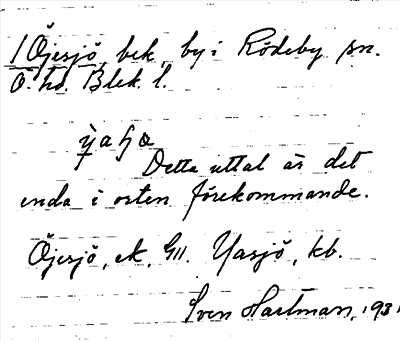 1 Öjesjö, bek. by i Rödeby sn.
Ö. hd. Blek. l.
Detta uttal är det
enda i orten förekommande.
Öjesjö, ek, GII. Yasjö, kb.
Sven Hartman, 1931